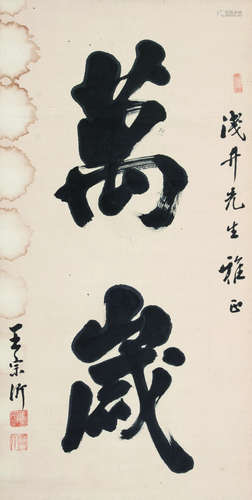 淺井先生雅正
萬歲
王宗沂